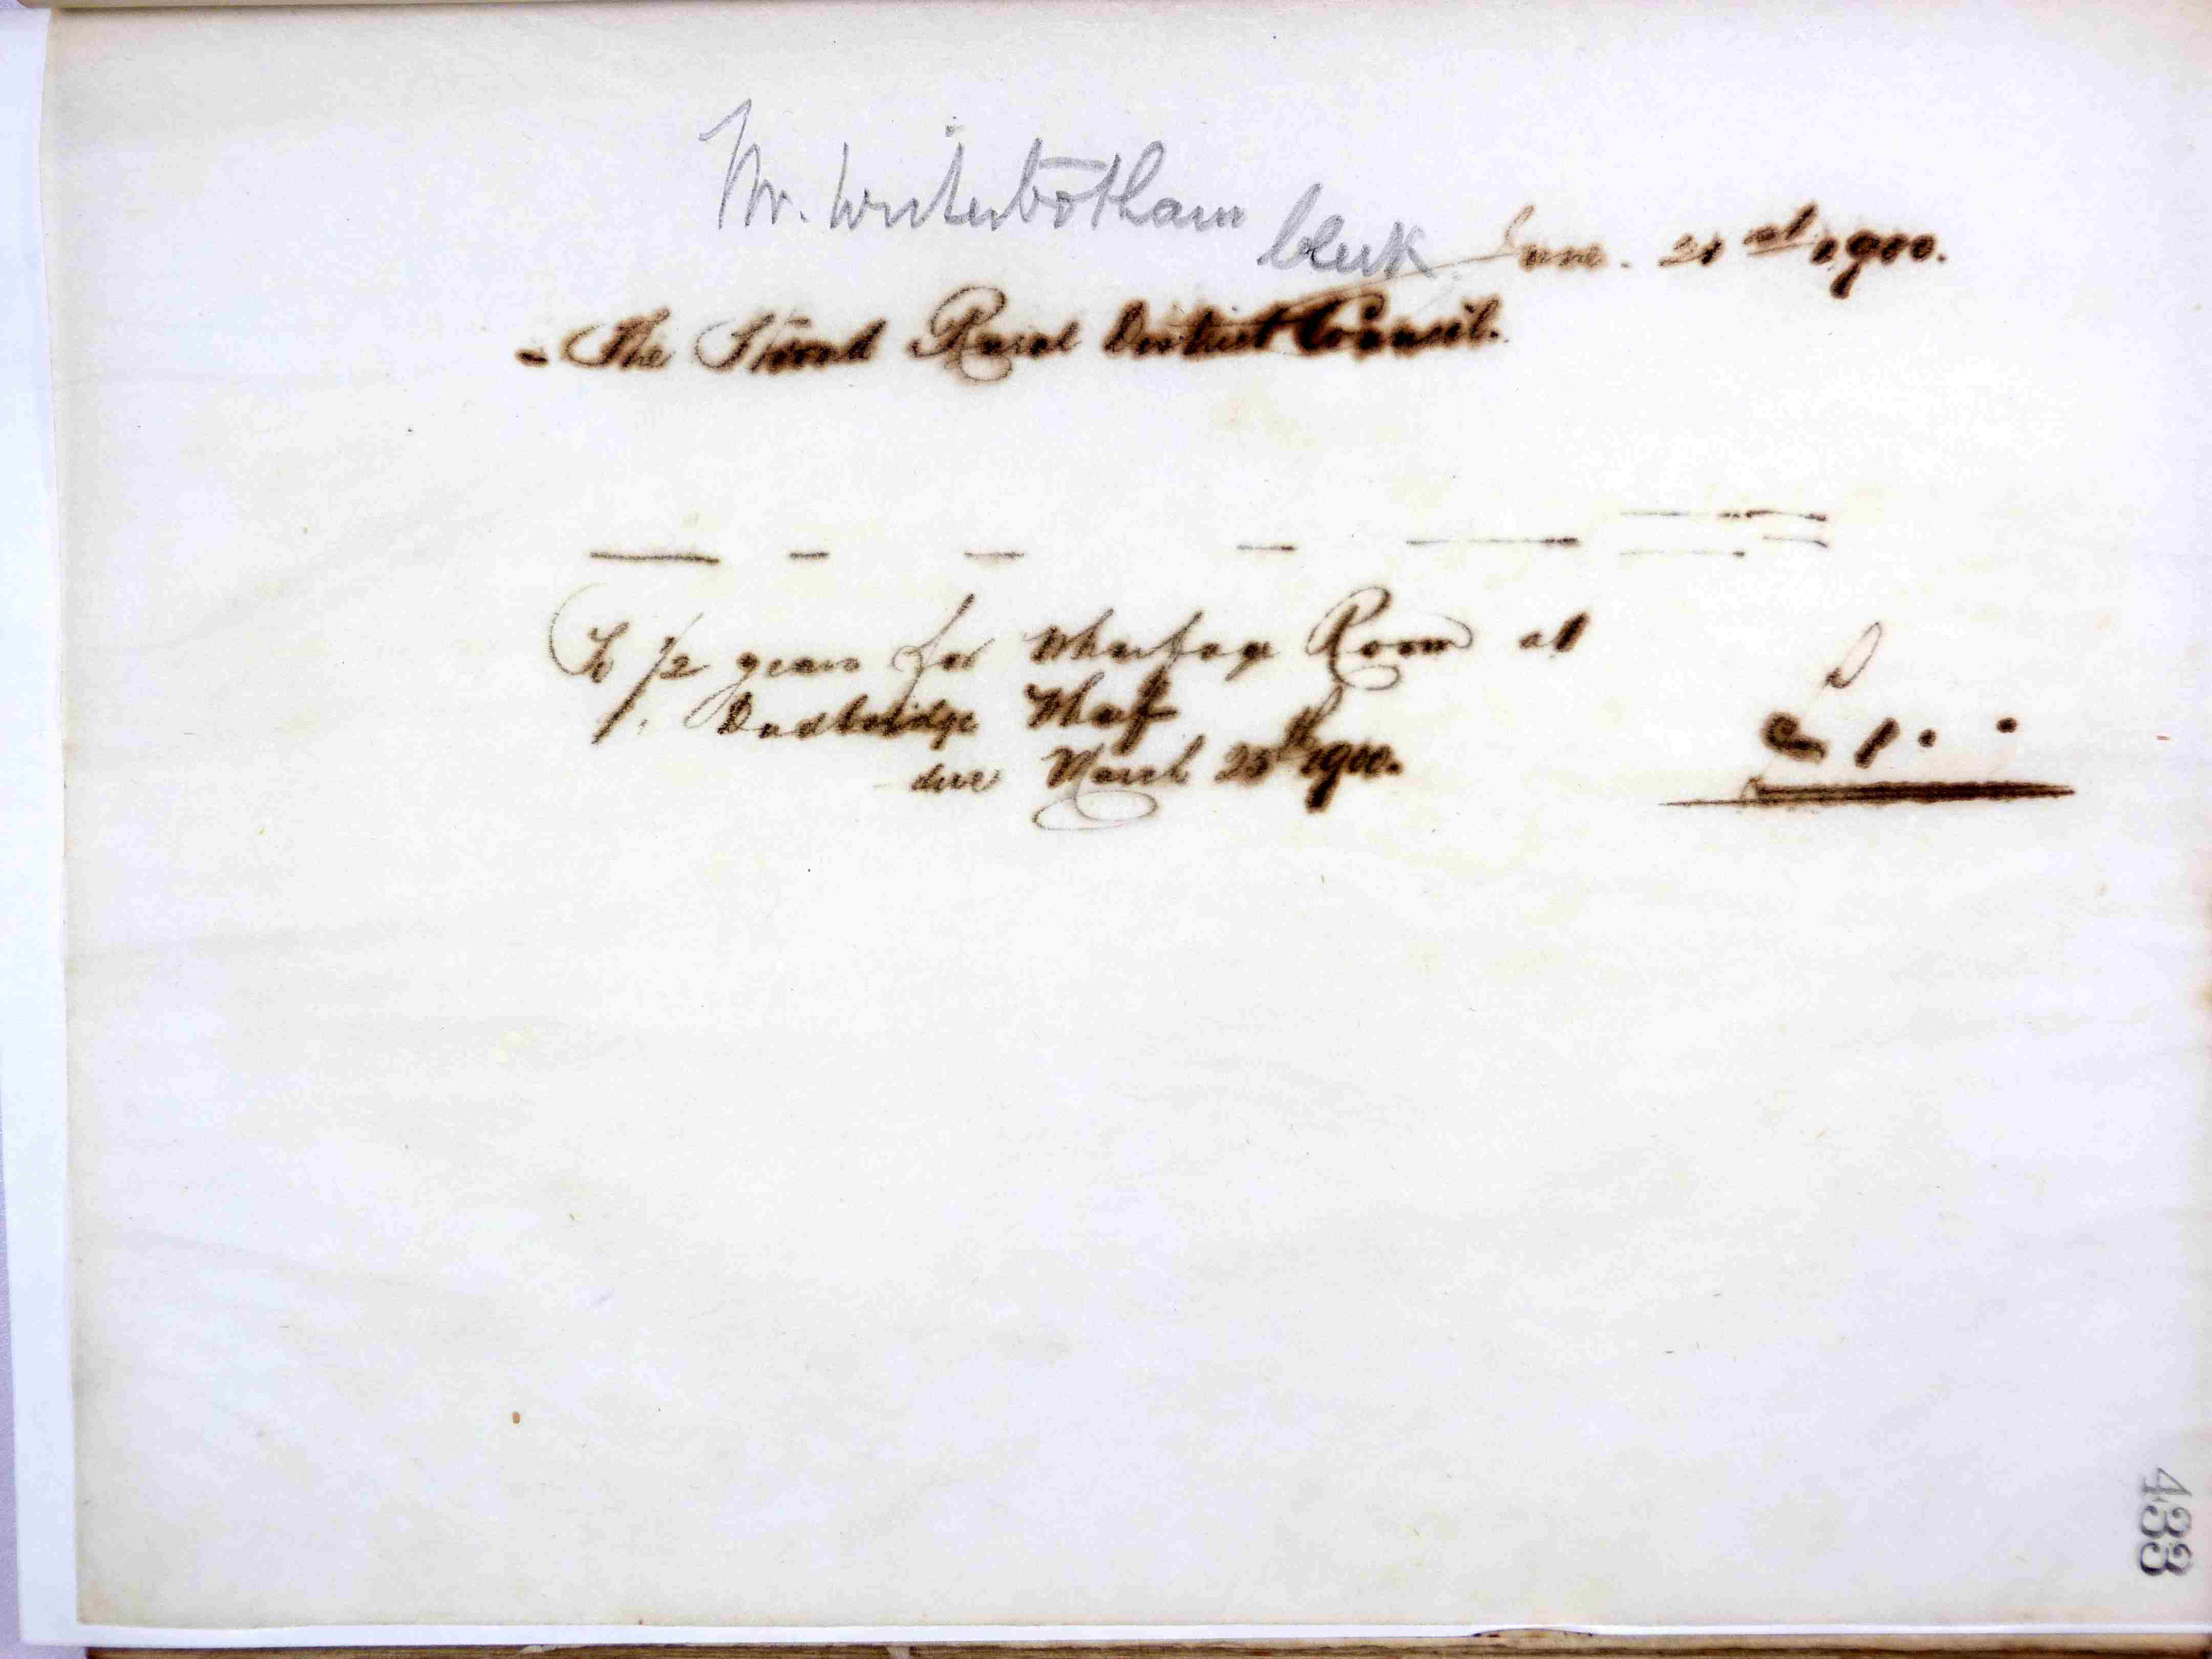 Mr. Winterbotham
Clerk
June. 21st 1900.
The Stroud Rural District Council.
To 1/2 years for Wharfage Room at
Dudbridge Wharf
due March 25th 1900.
£ 1 . .
433